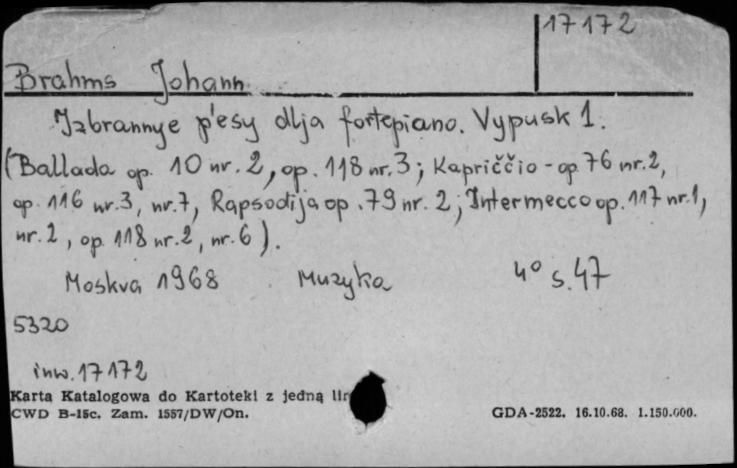 17172
Brahms Johann
Izbrannye p'esy dlja fortepiano. Vypusk 1.
(Ballada op. 10 nr. 2, op. 118 nr. 3; Kapriččio - op. 76 nr. 2,
op. 116 nr. 3, nr. 7, Rapsodija op. 79 nr. 2; Intermecco op. 117 nr. 1,
nr. 2, op. 118 nr. 2, nr. 6).
Moskva 1968 Muzyka 4° s. 47
5320
inw. 17172
Karta Katalogowa do Kartoteki z jedną
CWD B-15c. Zam. 1557/DW/On. GDA-2522. 16.10.68. 1.150.000.